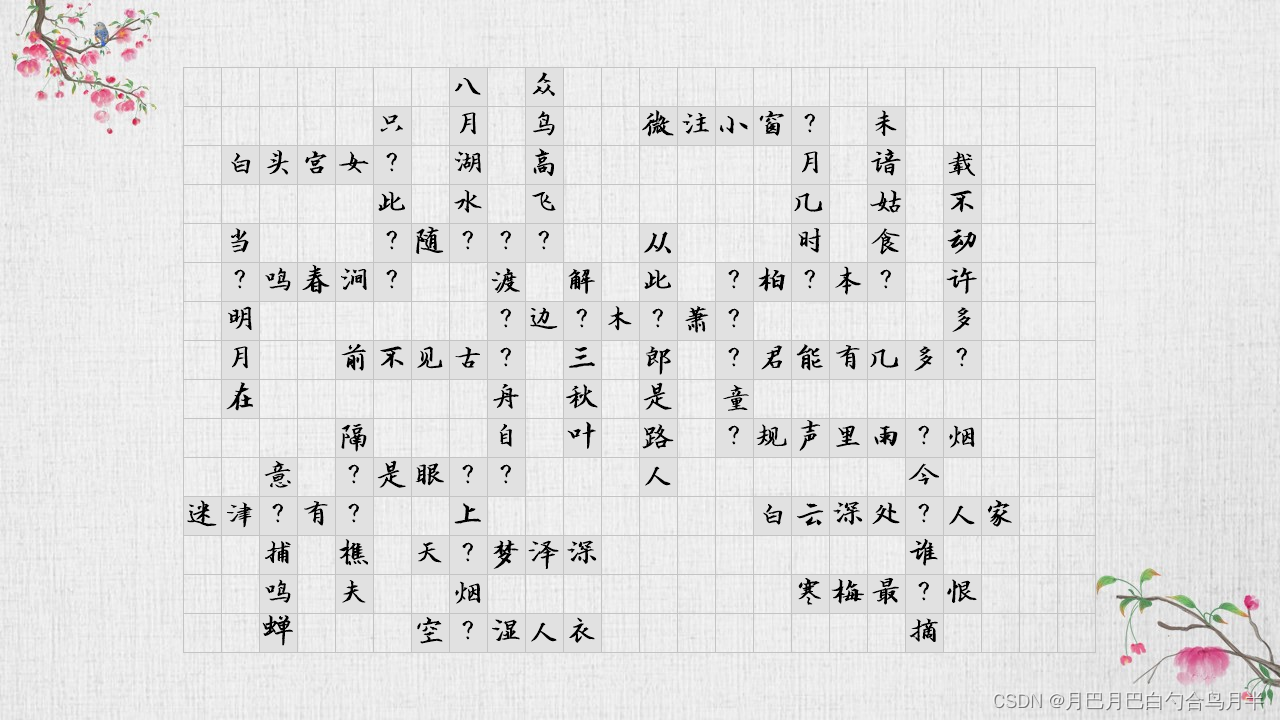 八 众
只 月 鸟 微注小窗? 未
白头宫女? 湖 高 月 谙 载
此 水 飞 几 姑 不
当 ?随??? 从 时 食 动
?鸣春涧? 渡 解 此 ?柏?本? 许
明 ?边?木?萧? 多
月 前不见古? 三 郎 ?君能有几多?
在 舟 秋 是 童
隔 自 叶 路 ?规声里雨?烟
意 ?是眼?? 人 今
迷津?有? 上 白云深处?人家
捕 樵 天?梦泽深 谁
鸣 夫 烟 寒梅最?恨
蝉 空?湿人衣 摘
CSDN @月巴月巴白勺合鸟月半